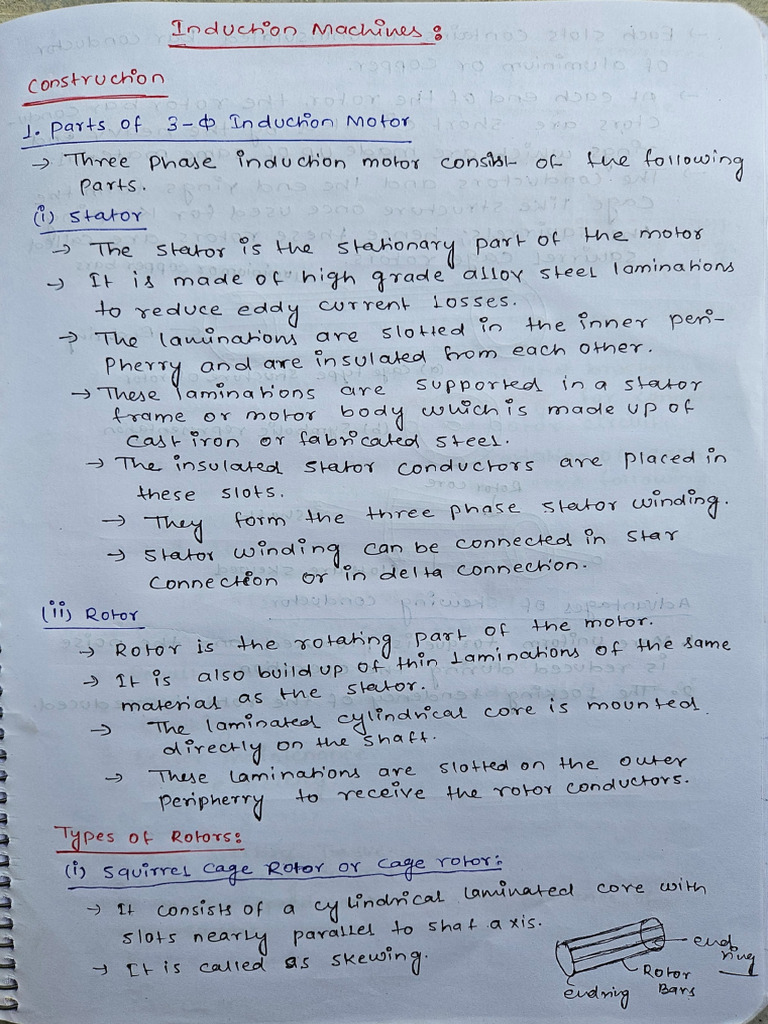 Induction Machines:
Construction
1. Parts of 3-Φ Induction Motor
→ Three Phase induction motor consist of the following
Parts.
(i) Stator
→ The stator is the stationary part of the motor
→ It is made of high grade alloy steel laminations
to reduce eddy current losses.
→ The laminations are slotted in the inner peri-
Pherry and are insulated from each other.
→ These laminations are supported in a stator
frame or motor body which is made up of
cast iron or fabricated steel.
→ The insulated stator conductors are placed in
these slots.
→ They form the three phase stator winding.
→ Stator winding can be connected in star
Connection or in delta connection.
(ii) Rotor
→ Rotor is the rotating part of the motor.
→ It is also build up of thin laminations of the same
material as the stator.
→ The laminated cylindrical core is mounted
directly on the shaft.
→ These laminations are slotted on the outer
peripherry to receive the rotor conductors.
Types of Rotors:
(i) Squirrel cage Rotor or cage rotor:
→ It consists of a cylindrical laminated core with
slots nearly parallel to shaf axis.
→ It is called as skewing.
end
ring
Rotor
Bars
endring